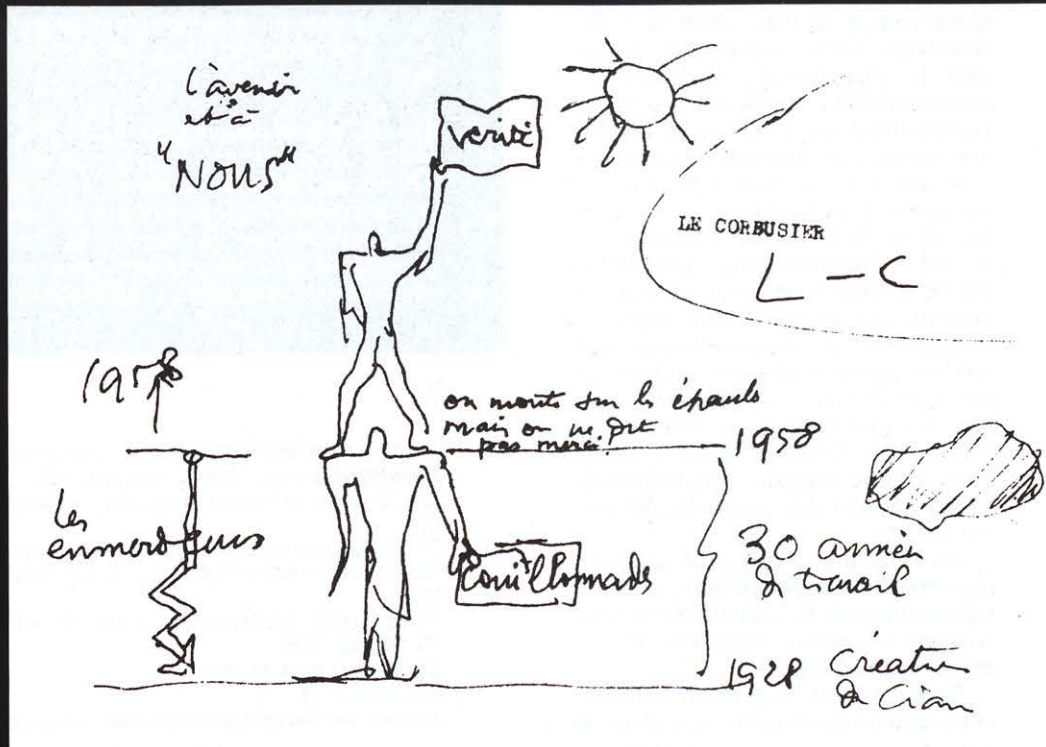 l'avenir
est à
"NOUS"
vérité
LE CORBUSIER
L-C
1958
on monte sur les épaules
mais on ne dit
pas merci.
1958
les
emmerdeurs
Couillonnade
30 années
de travail
1928 Création
de Ciam